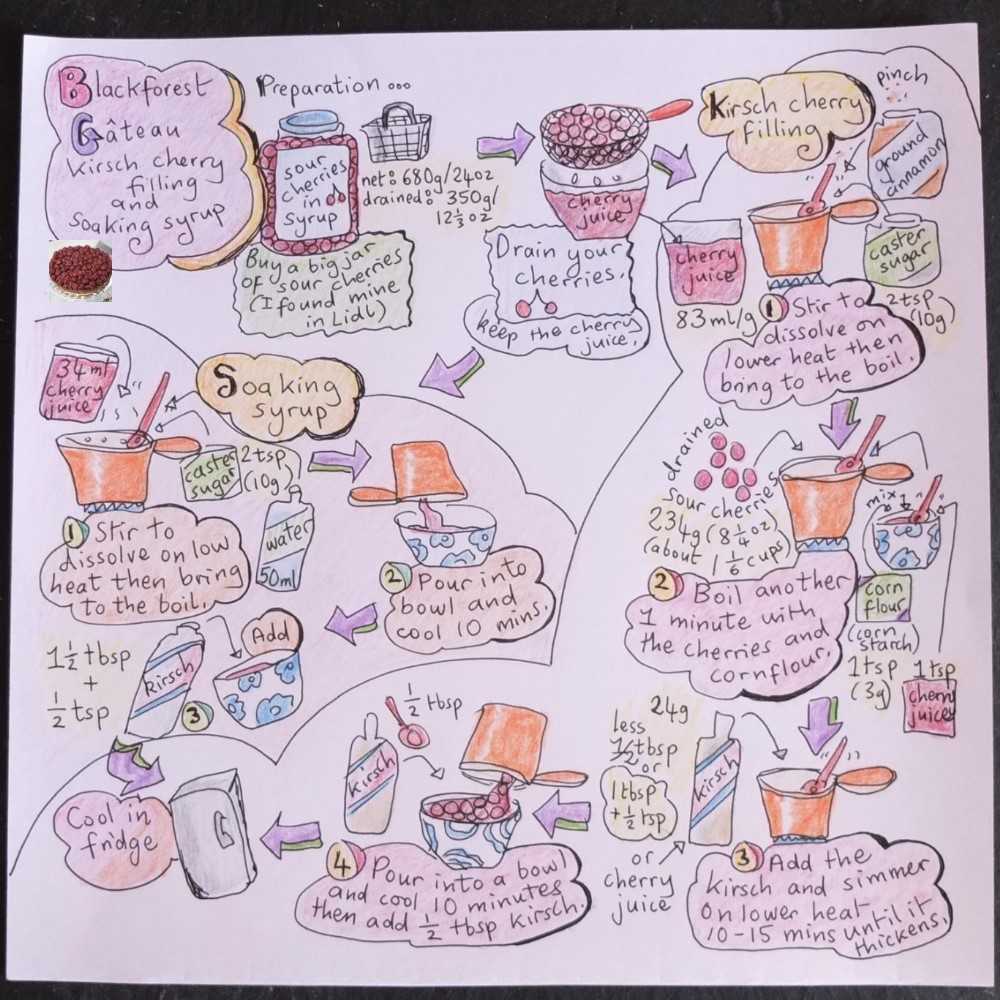 Blackforest
Gâteau
Kirsch cherry
filling
and
soaking syrup
Preparation...
sour
cherries
in
syrup
net: 680g/24oz
drained: 350g/
12⅓oz
Buy a big jar
of sour cherries
(I found mine
in Lidl)
cherry
juice
Drain your
cherries.
keep the cherry
juice.
Kirsch cherry
filling
pinch
ground
cinnamon
cherry
juice
83ml/g
caster
sugar
2tsp
(10g)
1 Stir to
dissolve on
lower heat then
bring to the boil.
drained
sour cherries
234g (8¼oz)
(about 1⅙ cups)
mix
corn
flour
(corn
starch)
1tsp
(3g)
1tsp
cherry
juice
2 Boil another
1 minute with
the cherries and
cornflour.
24g
less
½tbsp
or
1tbsp
+½tsp
or
cherry
juice
kirsch
3 Add the
kirsch and simmer
on lower heat
10-15 mins until it
thickens.
½ tbsp
kirsch
4 Pour into a bowl
and cool 10 minutes
then add ½ tbsp kirsch.
Cool in
fridge
Soaking
syrup
34ml
cherry
juice
caster
sugar
2tsp
(10g)
water
50ml
1 Stir to
dissolve on low
heat then bring
to the boil.
2 Pour into
bowl and
cool 10 mins.
Add
1½ tbsp
+
½ tsp
kirsch
3